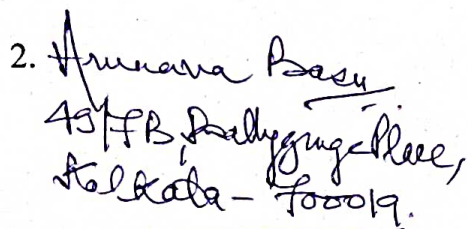 2. Arunava Basu
49/7B, Ballygunge Place,
Kolkata - 700019.